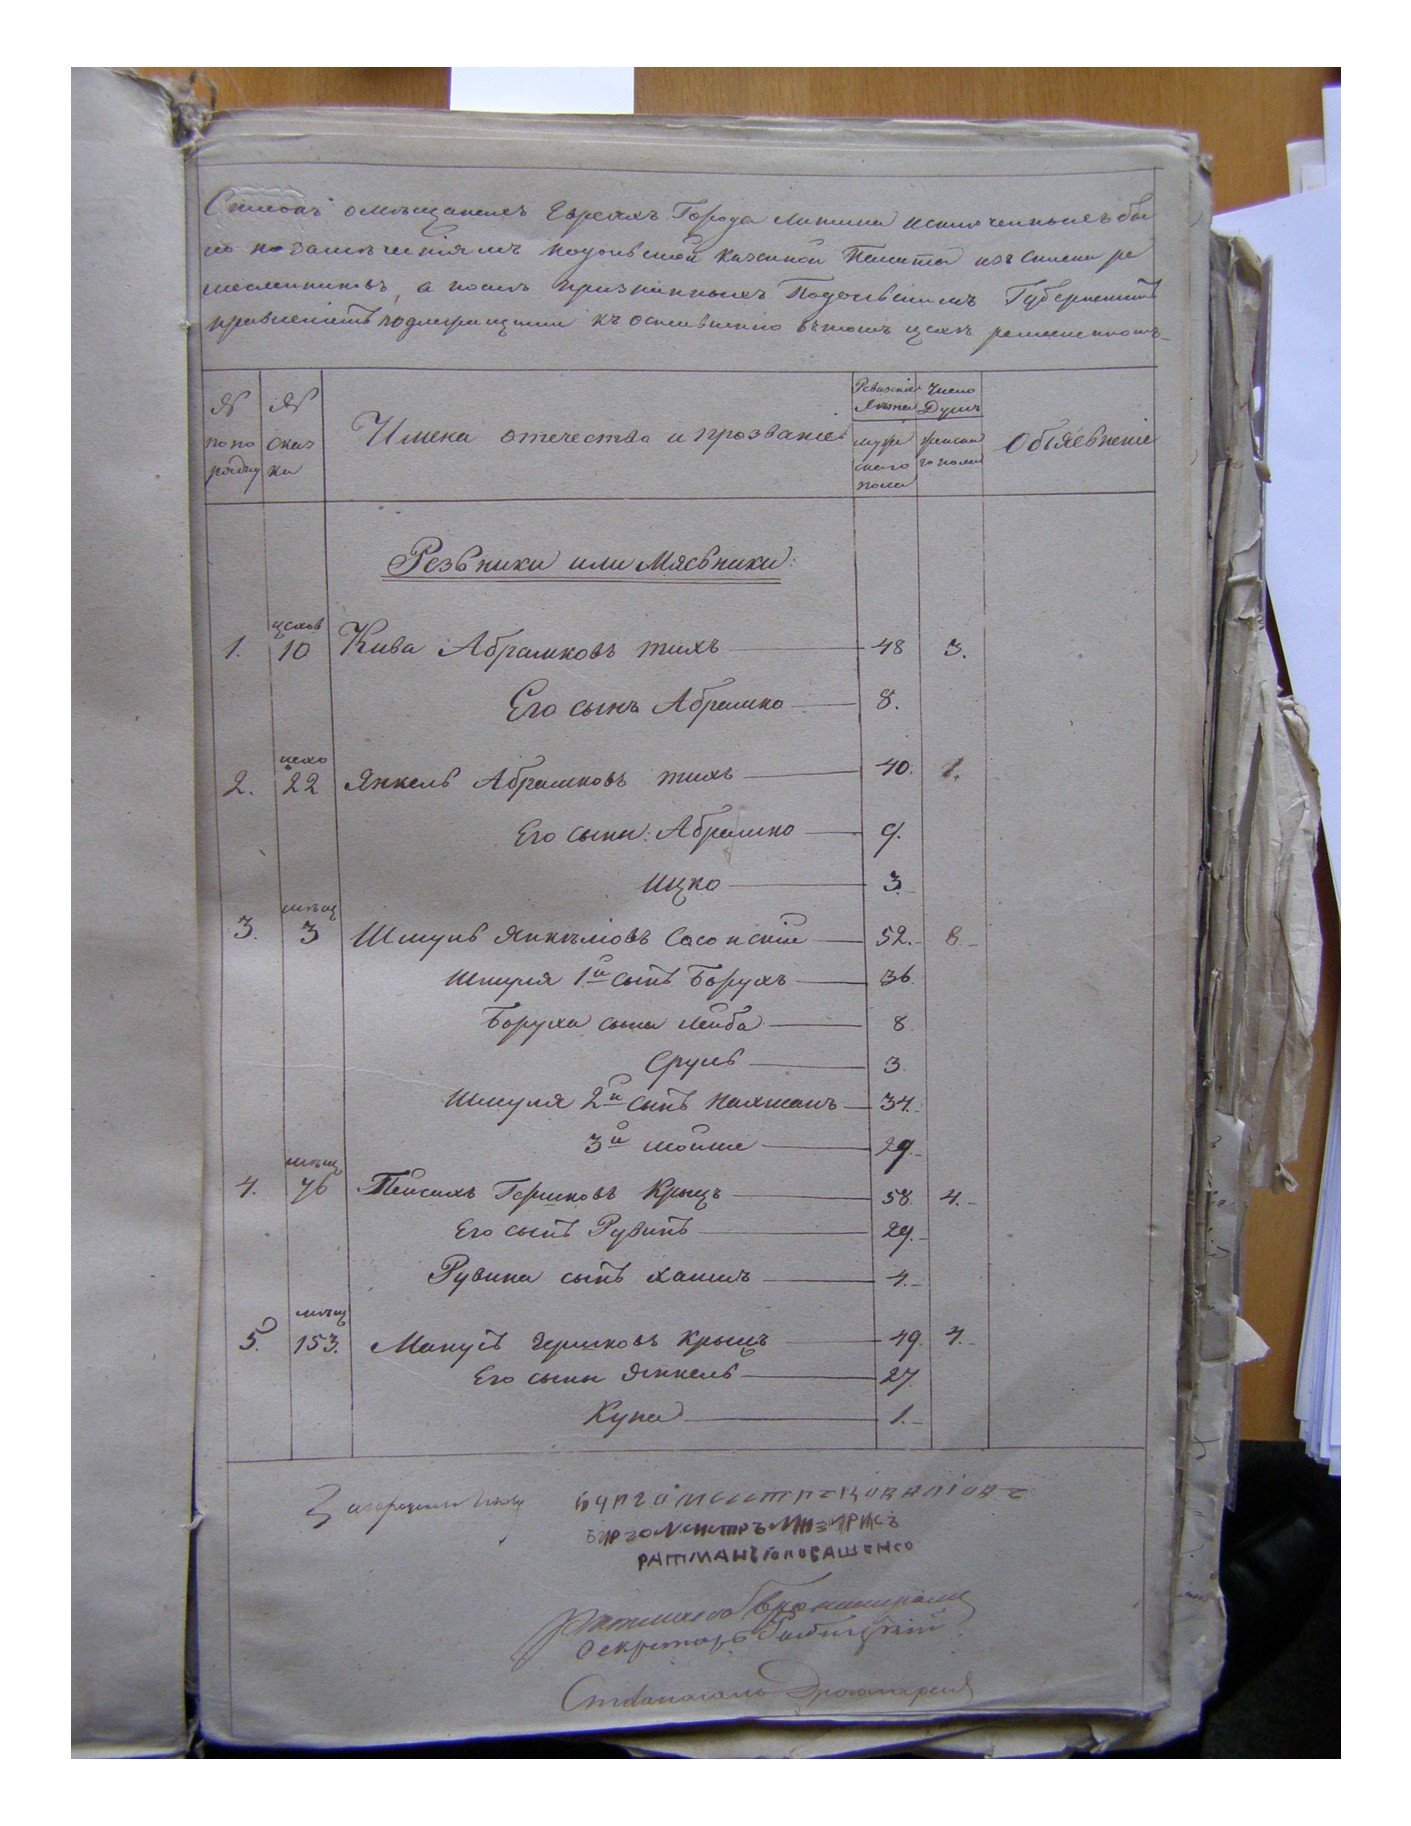 Список о мещанехъ Евреяхъ Города Литина исключенныхъ бы
ло по замечаніямъ Подольской Казенной Палаты изъ списка ре
месленниковъ, а посемъ признанныхъ Подольскимъ Губернскимъ
правленіемъ подлежащими къ оставленію въ томъ цехе ремесленномъ
№ по по рядку
№ сказ ки
Имена отечества и прозваніе
Ревизскіе лета
мужескаго пола
Число Душъ
женскаго пола
Объяевленіе
Резьники или Мясьники:
1. цехов 10 Кива Абрамковъ тихъ 48 3.
Его сынъ Абрамко 8.
2. цехо 22 Янкель Абрамковъ тихъ 40. 1.
Его сыны: Абрамко 9.
Ицко 3.
3. мещ 3 Шмуль Янкелювъ 52. 6.
Шмуля 1й сынъ Борухъ 36
Боруха сыны Лейба 8
Сруль 3
Шмуля 2й сынъ Нахманъ 34.
3й Мошко 29.
4. мещ 76 Пейсахъ Гершковъ Крыцъ 58 4.
Его сынъ Рувинъ 29.
Рувина сынъ Хаимъ 4.
5. мещ 153. Манусъ Гершковъ Крыцъ 49 4.
Его сыны Янкель 27
Купа 1.
Бургомистръ
Бургомистръ
РАТМАНЪ Головащенко
Ратманъ
Секретарь